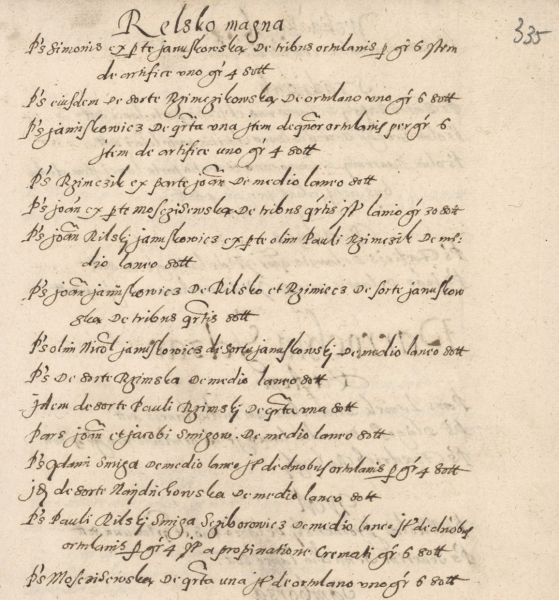 Relsko magna
335
Ps Simonis ex pte januskowska De tribus ortulanis p gr 6 Item
de artifice uno gr 4 sott
Ps eiusdem De sorte Rzimczikowska De ortulano uno gr 6 sott
Ps januskowicz De qrta una jtem de qtuor ortulanis per gr 6
jtem de artifice uno gr 4 sott
Ps Rzimczik ex parte joan De medio laneo sott
Ps joan ex pte Mosczidewska De tribus qrtis It lanio gr 30 sott
Ps joan Rilskj januskowicz ex pte olim Pauli Rzimczik De me-
dio laneo sott
Ps joan januskowicz De Rilsko et Rzimiecz De sorte januskow
ska De tribus qrtis sott
Ps olim Nicol januskowicz de sorte januskowskj De medio laneo sott
Ps De sorte Rzimska De medio laneo sott
jdem de sorte Pauli Rzimskj De qrta una sott
Pars joan et jacobi Smigow De medio laneo sott
Ps Adami Smiga De medio laneo jt de duobus ortulanis p gr 4 sott
de sorte De medio laneo sott
Ps Pauli Rilskj Smiga Scziborowicz De medio laneo jt de duobus
ortulanis p gr 4 It a propinatione Cremati gr 6 sott
Ps Mosczidewska De qrta una jt de ortulano uno gr 6 sott